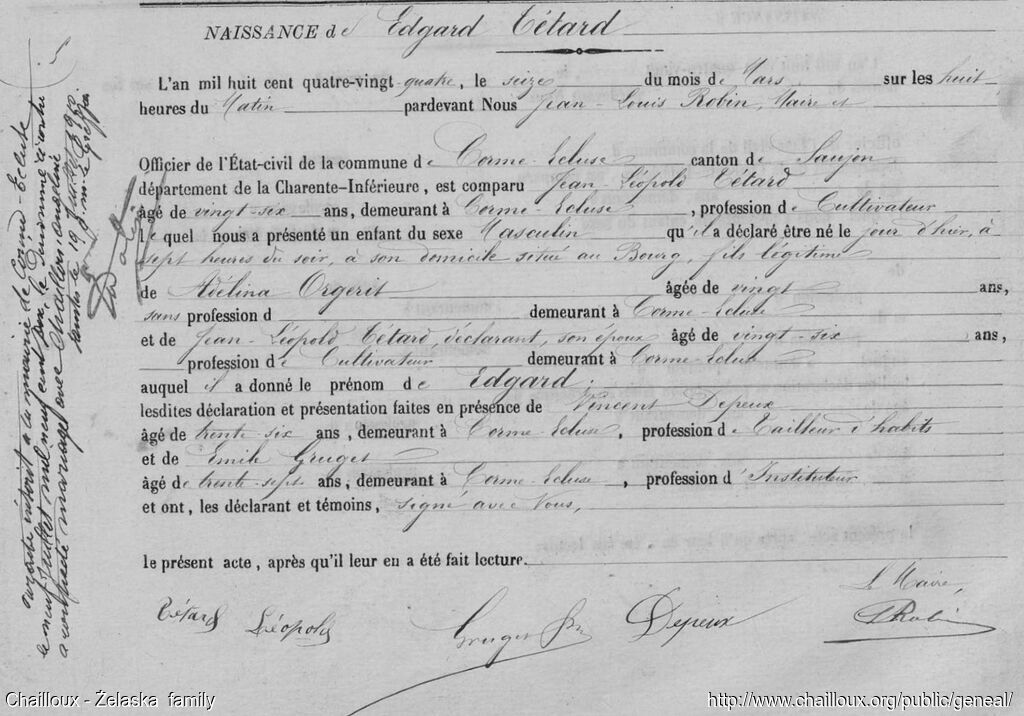 NAISSANCE de Edgard Tétard
L'an mil huit cent quatre-vingt-quatre, le seize du mois de Mars sur les huit
heures du Matin pardevant Nous Jean-Louis Robin, Maire et
Officier de l'État-civil de la commune de Corme-Ecluse canton de Saujon
département de la Charente-Inférieure, est comparu Jean-Léopold Tétard
âgé de vingt-six ans, demeurant à Corme-Ecluse, profession de Cultivateur
Le quel nous a présenté un enfant du sexe Masculin qu'il a déclaré être né le jour d'hier, à
sept heures du soir, à son domicile situé au Bourg, fils légitime
de Adélina Orgerit âgée de vingt ans,
sans profession d demeurant à Corme-Ecluse
et de Jean-Léopold Tétard, déclarant, son époux âgé de vingt-six ans,
profession de Cultivateur demeurant à Corme-Ecluse
auquel il a donné le prénom de Edgard;
lesdites déclaration et présentation faites en présence de Vincent Depeux
âgé de trente-six ans, demeurant à Corme-Ecluse, profession de Tailleur d'habits
et de Emile Gruget
âgé de trente-sept ans, demeurant à Corme-Ecluse, profession d'Instituteur
et ont, les déclarant et témoins, signé avec Nous,
le présent acte, après qu'il leur en a été fait lecture.
Le Maire,
Tétard Léopold Gruget Depeux Robin
suivant à la mairie de Corme-Ecluse
le neuf Juillet mil neuf cent dix, le susnommé a contracté
a mariage avec
Saintes le 19 Juillet 1910.
Chailloux - Želaska family
http://www.chailloux.org/public/geneal/